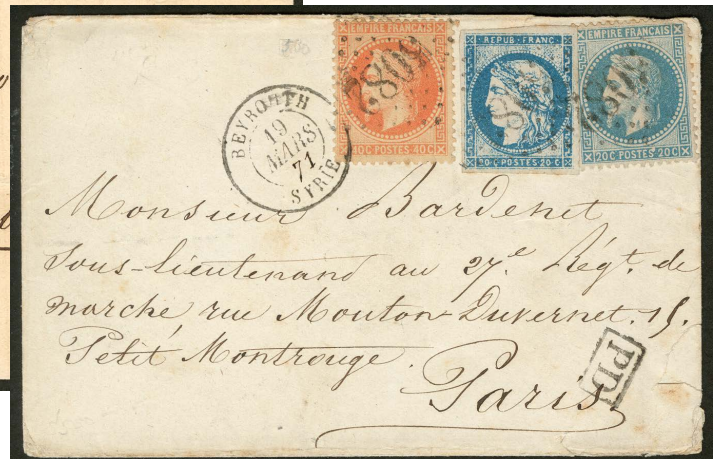 EMPIRE FRANÇAIS
40C POSTES 40C
5082
REPUB. FRANC.
20C POSTES 20C
EMPIRE FRANÇAIS
20C POSTES 20C
5082
BEYROUTH
19
MARS
71
SYRIE
Monsieur Bardenet
Sous-lieutenant au 27e. Régt. de
marche rue Mouton-Duvernet. 15.
Petit Montrouge.
Paris.
PD